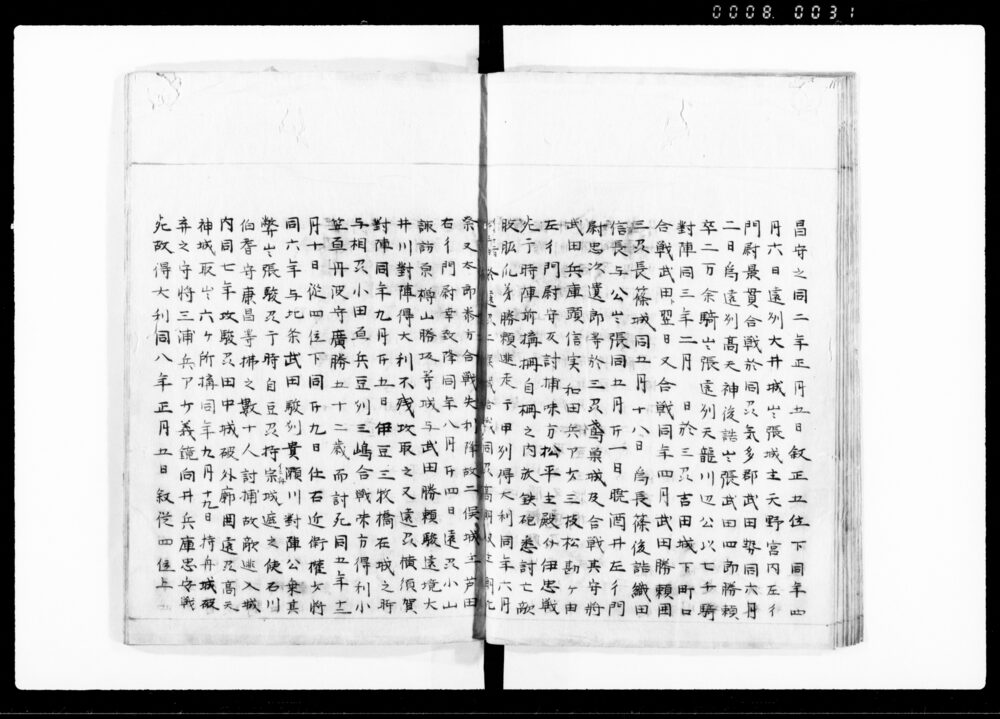 0008 0031
昌守之同二年正月五日叙正五位下同年四
月六日遠州大井城出張城主天野宮内左衛
門尉最貫合戦於同州気多郡武田勢同六月
二日為遠州高天神後詰出張武田四郎勝頼
卒二万余騎出張遠州天龍川辺公以七千騎
対陣同三年二月 日於三州吉田城下町口
合戦武田翌日又合戦同年四月武田勝頼囲
三州長篠城同五月十八日為長篠後詰織田
信長与公出張同五月廿一日暁酒井左衛門
尉忠次遺郎等於三州鳶巣城及合戦其守将
武田兵庫頭信実和田兵部三枝松勘ヶ由
左衛門尉守友討捕味方松平主殿介伊忠戦
死于時陣前構柵自柵之内放鉄砲悉討亡敵
敗北乃勝頼逃走于甲州得大利同年六月
右衛門尉幸致降同年八月廿四日遠州小山
諏訪原樽山勝坂等城与武田勝頼駿遠境大
井川対陣得大利不残攻取之又遠州横須賀
対陣同年九月廿五日伊豆三牧橋在城之所
与相州小田原兵豆州三嶋合戦味方得利小
笠原丹波守廣勝五十二歳而討死同五年十二
月十日従四位下同廿九日任右近衛権少将
同六年与北条武田駿州黄瀬川対陣公乗其
弊出張駿州于時自豆州持宗城遮之使石川
伯耆守康昌等拂之数十人討捕故敵逃入城
内同七年攻駿州田中城破外廓囲遠州高天
神城取出六ヶ所構同年九月十九日持舟城破
弃之守将三浦兵部義鏡向井兵庫忠安戦
死故得大利同八年正月五日叙従四位上